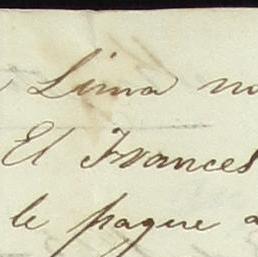 Lima no
El Frances
le pague a